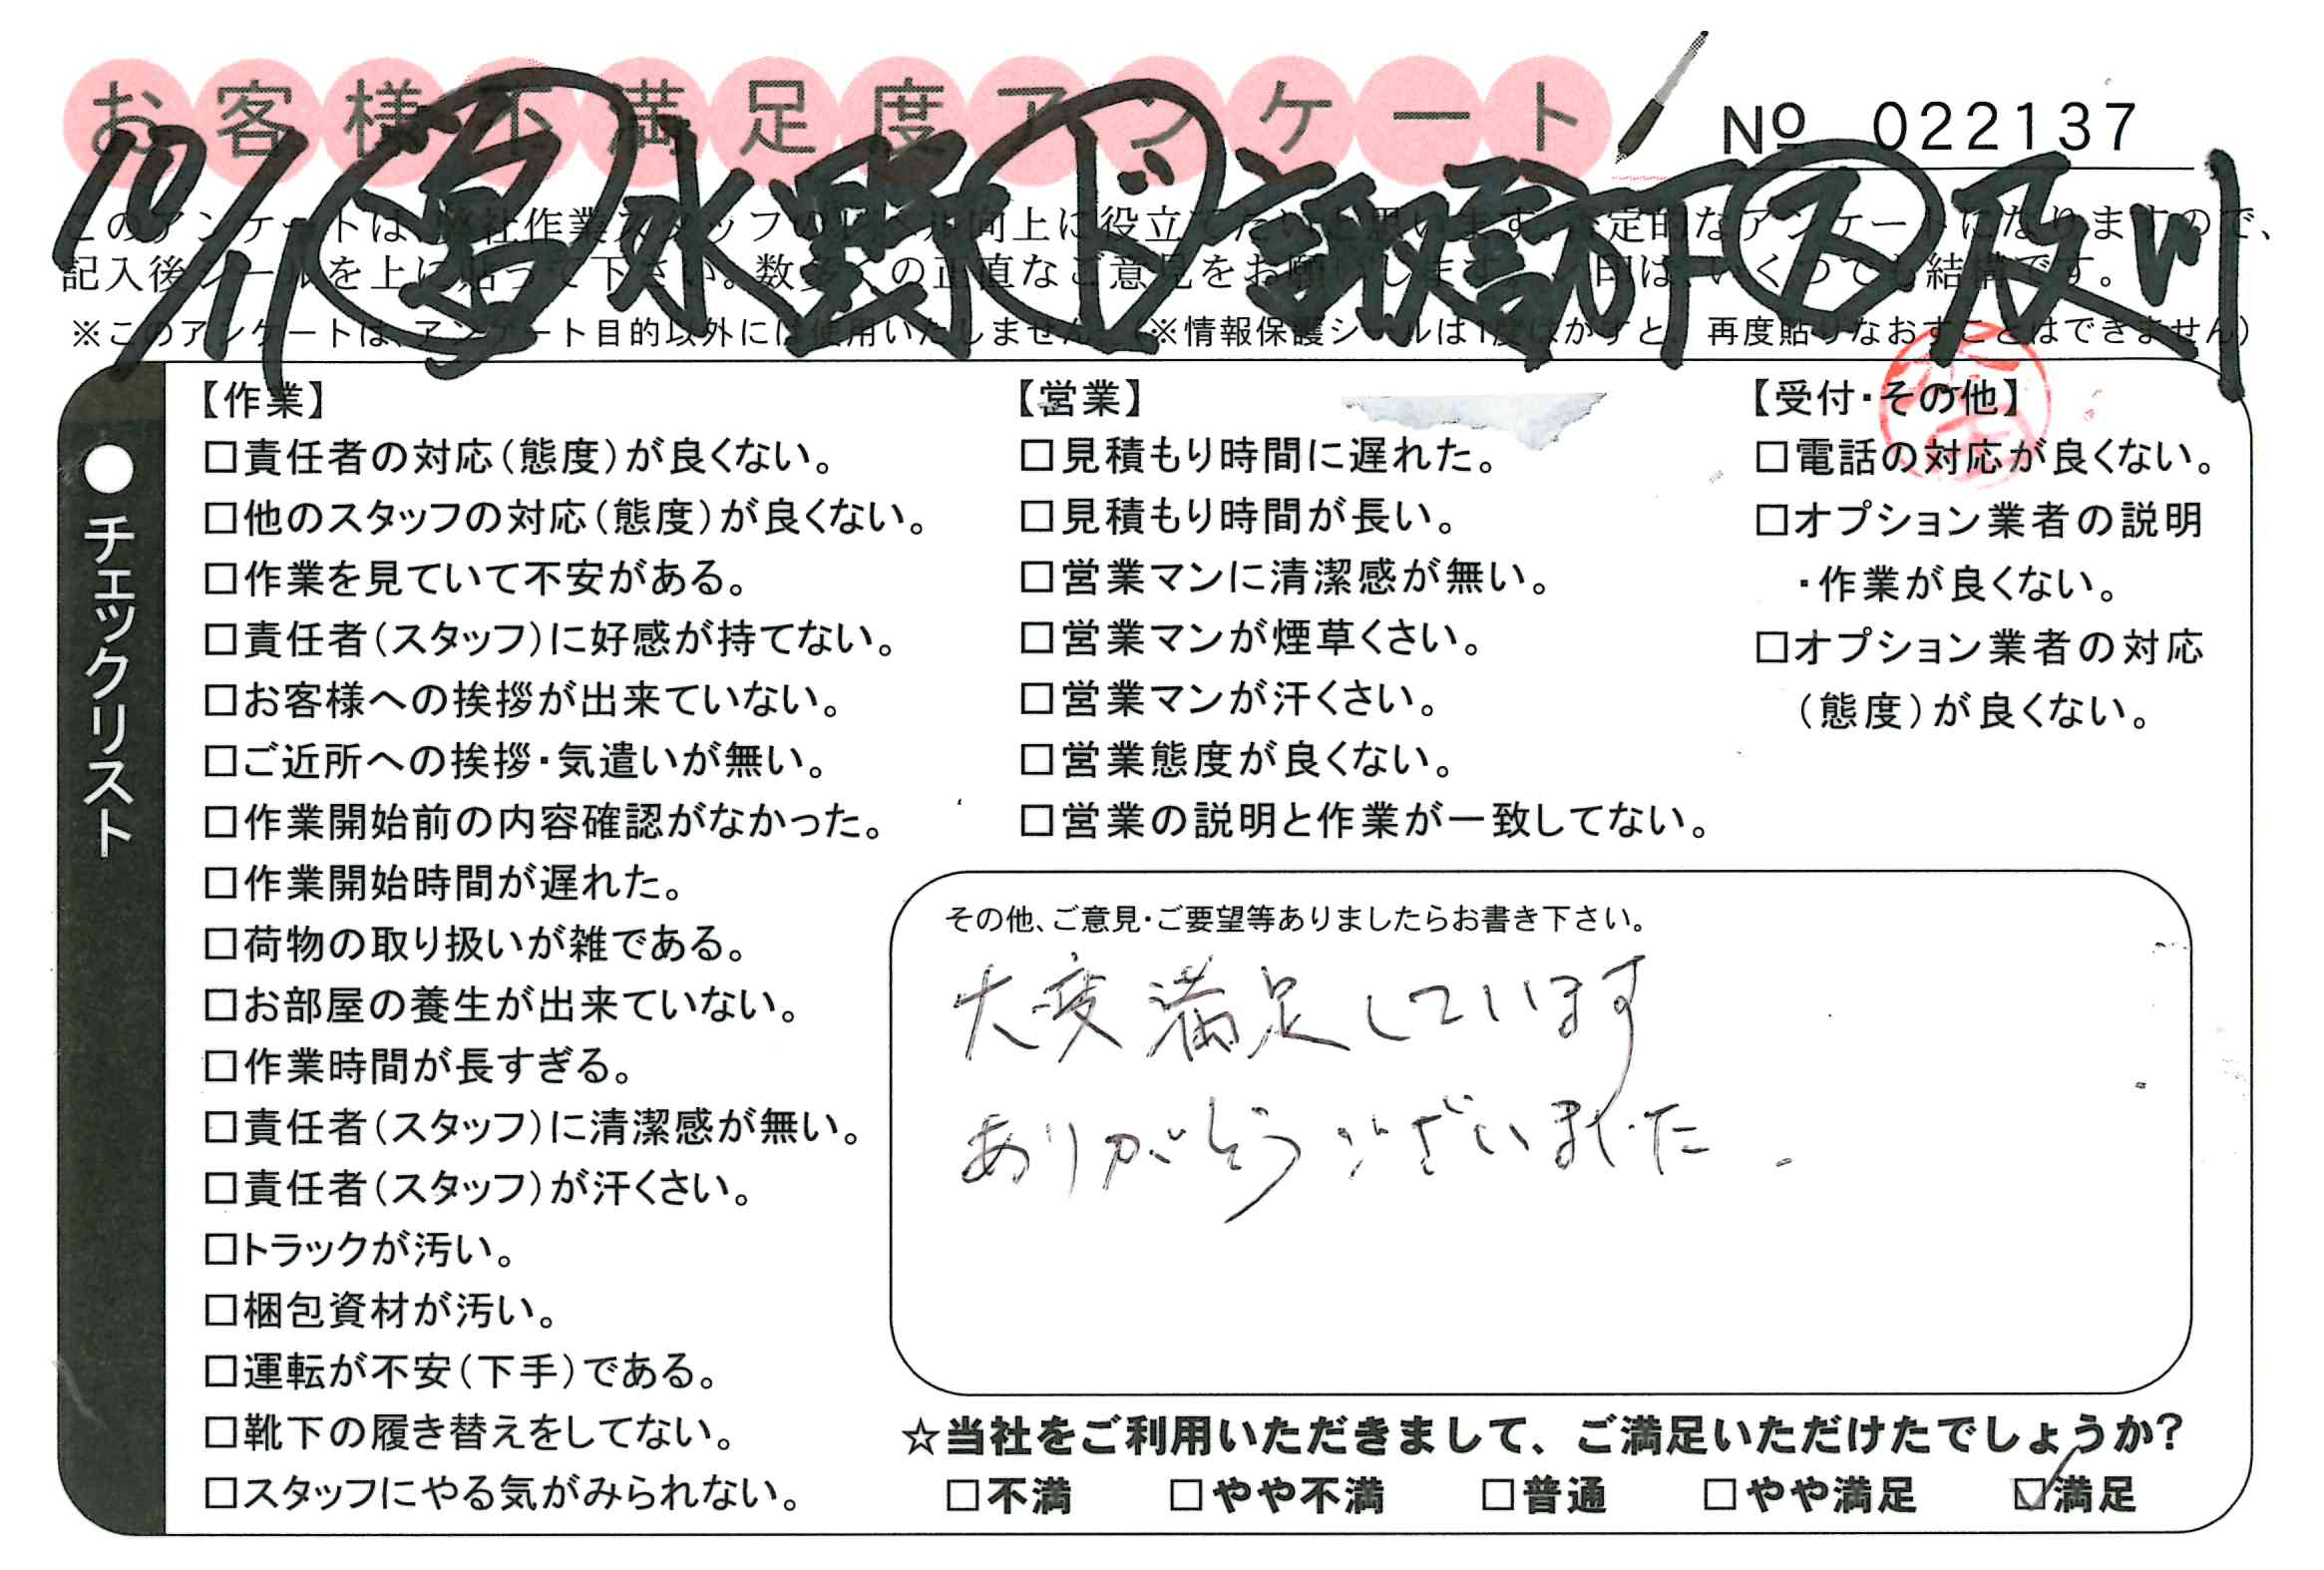 お客様不満足度アンケート
№ 022137
10/11 営 水野 ド 諏訪下 ス 及川
このアンケートは、弊社作業スタッフの 向上に役立てたいと思います。否定的なアンケートになりますので、
記入後シールを上に貼って下さい。数多くの正直なご意見をお願いします。 印は、いくつでも結構です。
※このアンケートは、アンケート目的以外には使用いたしません。 ※情報保護シールは1度はがすと、再度貼りなおすことはできません)
●チェックリスト
【作業】
□責任者の対応(態度)が良くない。
□他のスタッフの対応(態度)が良くない。
□作業を見ていて不安がある。
□責任者(スタッフ)に好感が持てない。
□お客様への挨拶が出来ていない。
□ご近所への挨拶・気遣いが無い。
□作業開始前の内容確認がなかった。
□作業開始時間が遅れた。
□荷物の取り扱いが雑である。
□お部屋の養生が出来ていない。
□作業時間が長すぎる。
□責任者(スタッフ)に清潔感が無い。
□責任者(スタッフ)が汗くさい。
□トラックが汚い。
□梱包資材が汚い。
□運転が不安(下手)である。
□靴下の履き替えをしてない。
□スタッフにやる気がみられない。
【営業】
□見積もり時間に遅れた。
□見積もり時間が長い。
□営業マンに清潔感が無い。
□営業マンが煙草くさい。
□営業マンが汗くさい。
□営業態度が良くない。
□営業の説明と作業が一致してない。
【受付・その他】
□電話の対応が良くない。
□オプション業者の説明
・作業が良くない。
□オプション業者の対応
(態度)が良くない。
その他、ご意見・ご要望等ありましたらお書き下さい。
大変満足しています
ありがとうございました。
☆当社をご利用いただきまして、ご満足いただけたでしょうか?
□不満 □やや不満 □普通 □やや満足 ☑満足